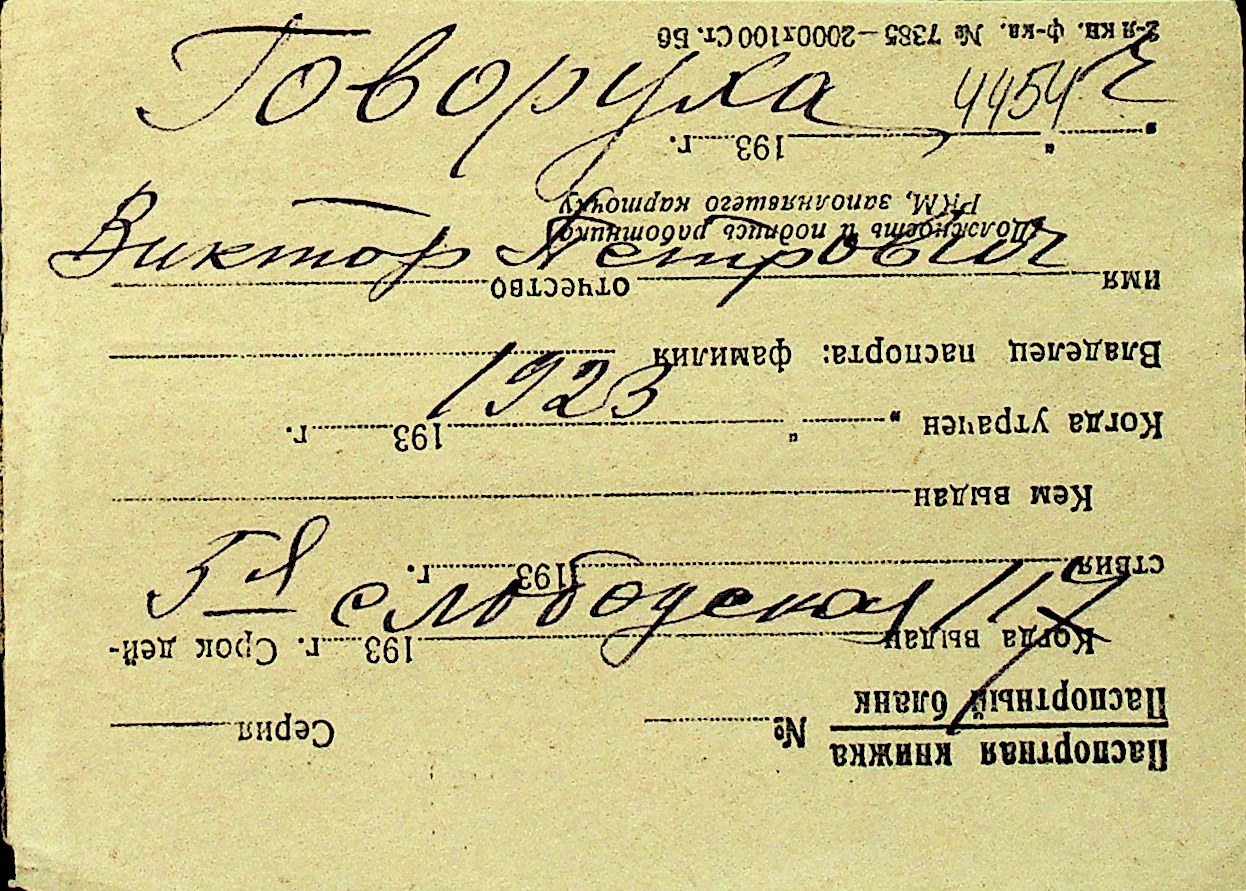 Говоруха 4454
Виктор Петрович
1923
5-я слободская
Паспортная книжка
Паспортный бланк № Серия
Когда выдан 193 г. Срок дей-
ствия 193 г.
Кем выдан
Когда утрачен „ “ 193 г.
Владелец паспорта: фамилия
имя отчество
(Должность и подпись работника
РКМ, заполнявшего карточку)
„ “ 193 г.
ф-ка. № 7385—2000х100 Ст. Бб